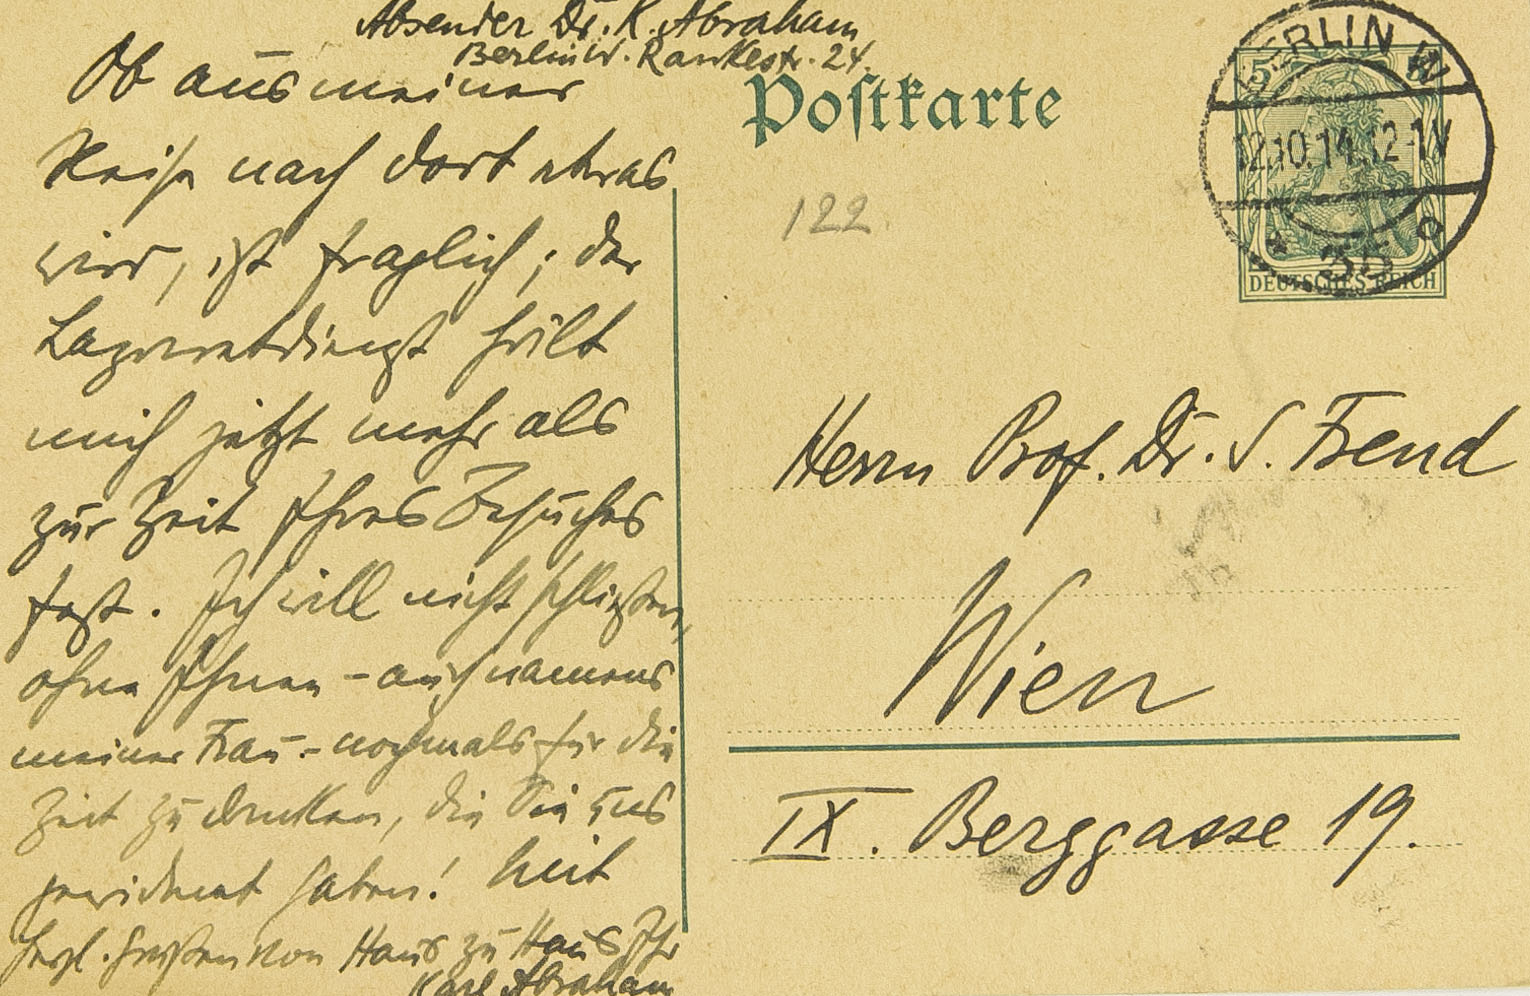 Absender Dr. K. Abraham
Berlin W. Rankestr. 24.
Ob aus meiner
Reise nach dort etwas
wird, ist fraglich; der
Lazarettdienst hält
mich jetzt mehr als
zur Zeit Ihres Besuches
fest. Ich will nicht schließen,
ohne Ihnen - auch namens
meiner Frau - nochmals für die
Zeit zu danken, die Sie uns
gewidmet haben! Mit
herzl. Grüßen von Haus zu Haus Ihr
Karl Abraham
Postkarte
122
BERLIN W
12.10.14.12-1N
35
DEUTSCHES REICH
Herrn Prof. Dr. S. Freud
Wien
IX. Berggasse 19.